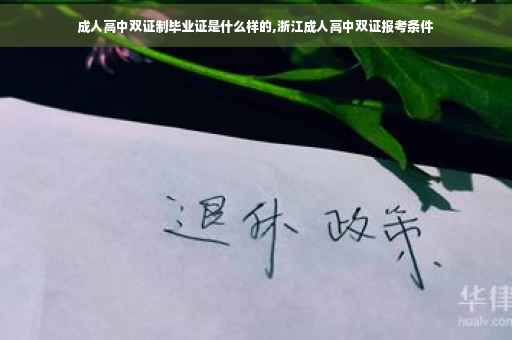 成人高中双证制毕业证是什么样的,浙江成人高中双证报考条件
退休 政策
华律
hualv.com